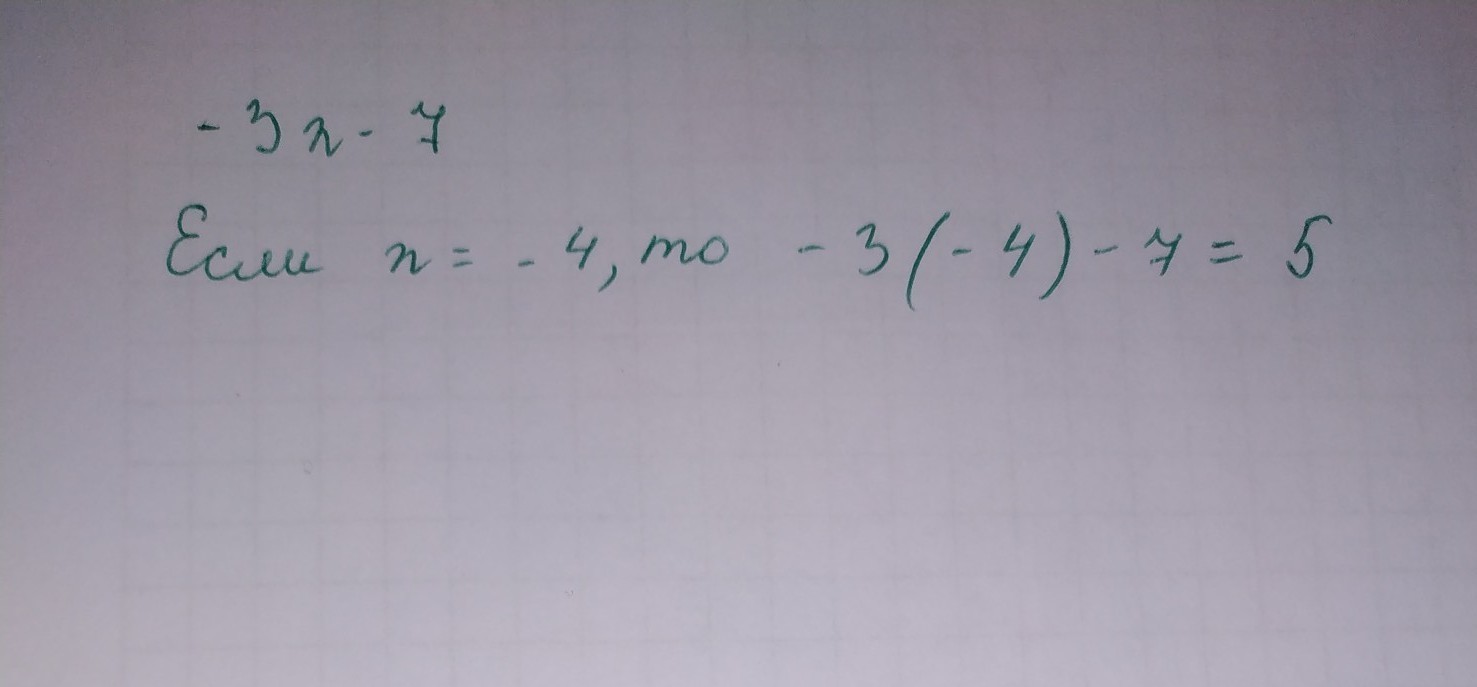 -3n - 7
Если n = -4, то -3(-4) - 7 = 5